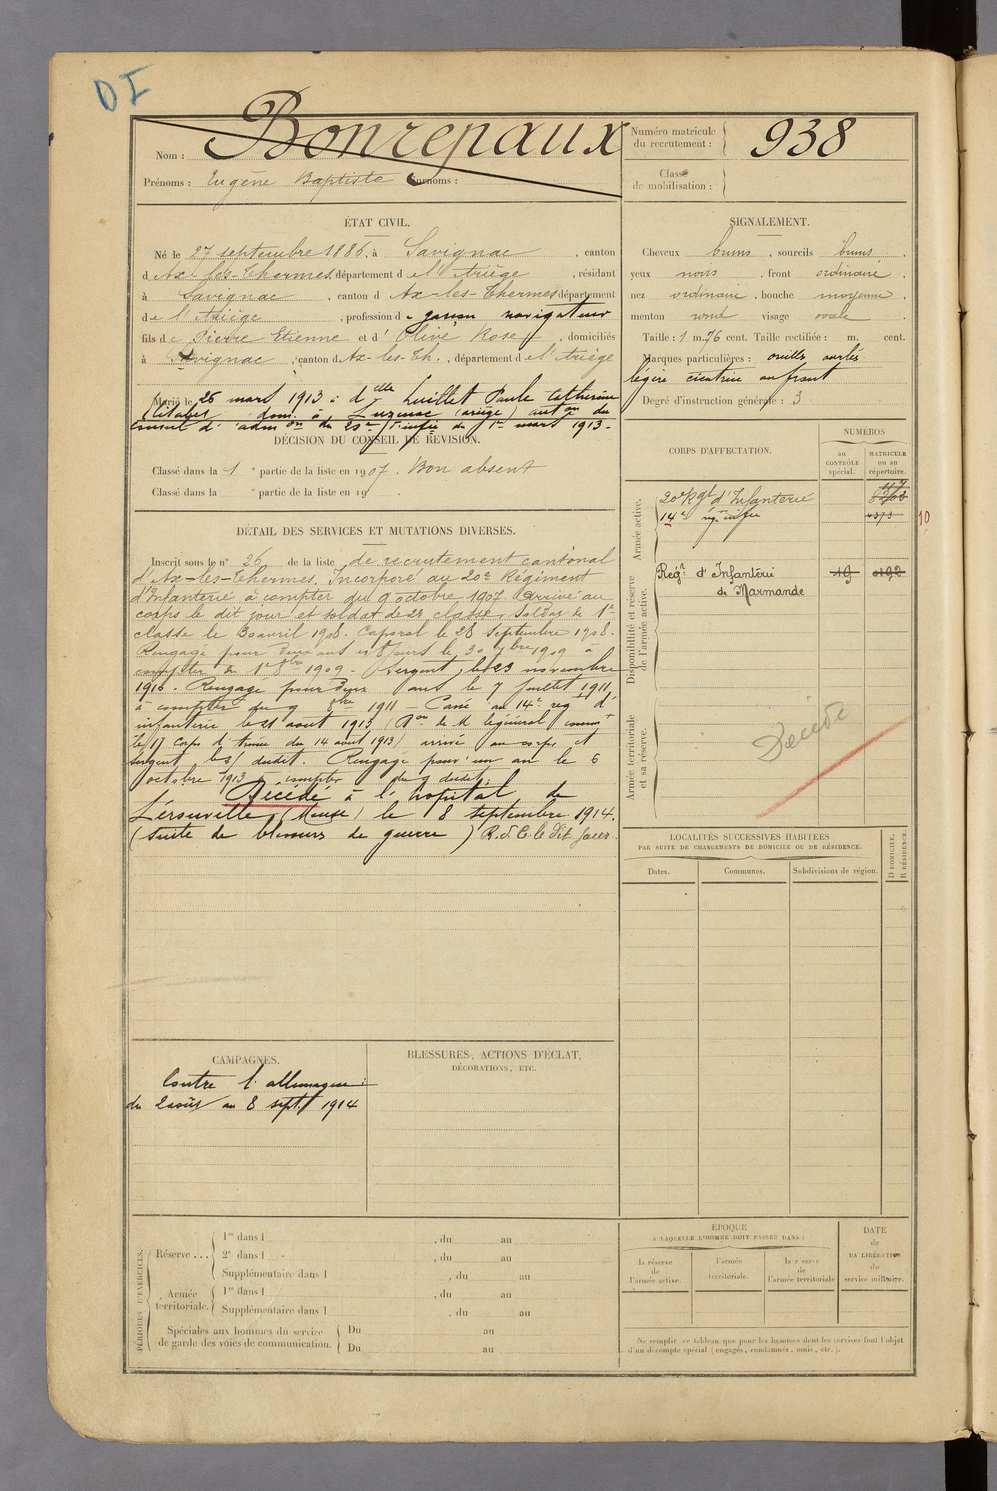 DI
Nom : Bonrepaux
Prénoms : Eugène Baptiste Surnoms :
Numéro matricule du recrutement : 938
Classe de mobilisation :
ÉTAT CIVIL.
Né le 27 septembre 1886, à Savignac, canton
d'Ax-les-Thermes, département de l'Ariège, résidant
à Savignac, canton d'Ax-les-Thermes département
de l'Ariège, profession de garçon navigateur
fils de Pierre Etienne et d'Olive Rose, domiciliés
à Savignac, canton d'Ax-les-Th., département de l'Ariège
Marié le 25 mars 1913 à dlle Luillet Paule Catherine
dom. à Luzenac (ariège) auton du
conseil d'admon du 20e d'infie du 1er mars 1913.
SIGNALEMENT.
Cheveux bruns, sourcils bruns,
yeux noirs, front ordinaire,
nez ordinaire, bouche moyenne,
menton rond visage ovale
Taille : 1 m. 76 cent. Taille rectifiée : m. cent.
Marques particulières : oreilles ourlés
légère cicatrice au front
Degré d'instruction générale : 3
DÉCISION DU CONSEIL DE RÉVISION.
Classé dans la 1 e partie de la liste en 1907. Bon absent
Classé dans la e partie de la liste en 19 .
DÉTAIL DES SERVICES ET MUTATIONS DIVERSES.
Inscrit sous le n° 26 de la liste de recrutement cantonal
d'Ax-les-Thermes. Incorporé au 20e Régiment
d'Infanterie à compter du 9 octobre 1907. Arrivé au
corps le dit jour et soldat de 2e classe. Soldat de 1e
classe le 30 avril 1908. Caporal le 28 Septembre 1908.
Rengagé pour deux ans et 8 jours le 30 7bre 1909 à
compter du 1er 8bre 1909. Sergent le 23 novembre
1910. Rengagé pour deux ans le 7 juillet 1911,
à compter du 9 8bre 1911 - Passé au 14e regt d'
infanterie le 21 août 1913 (Don de M le général commt
le 17 Corps d'armée du 14 août 1913) arrivé au corps et
sergent le dudit. Rengagé pour un an le 6
octobre 1913 à compter du 9 dudit.
Décédé à l'hopital de
Lérouville (Meuse) le 8 septembre 1914.
(suite de blessures de guerre) R. d. C. le dit jour.
CORPS D'AFFECTATION.
NUMÉROS
au CONTRÔLE spécial.
MATRICULE ou au répertoire.
Armée active.
20e Rgt d'Infanterie
14e régt infie 4373
10
Disponibilité et réserve de l'armée active.
Regt d'Infanterie 19 0192
de Marmande
Armée territoriale et sa réserve.
Décédé
LOCALITÉS SUCCESSIVES HABITÉES
PAR SUITE DE CHANGEMENTS DE DOMICILE OU DE RÉSIDENCE.
Dates.
Communes.
Subdivisions de région.
D DOMICILE. R RÉSIDENCE.
CAMPAGNES.
Contre l'allemagne :
du 2 août au 8 sept. 1914
BLESSURES, ACTIONS D'ÉCLAT,
DÉCORATIONS, ETC.
PÉRIODES D'EXERCICES.
Réserve ...
1re dans l , du au
2e dans l , du au
Supplémentaire dans l , du au
Armée territoriale.
1re dans l , du au
Supplémentaire dans l , du au
Spéciales aux hommes du service
de garde des voies de communication.
Du au
Du au
ÉPOQUE
À LAQUELLE L'HOMME DOIT PASSER DANS :
la réserve de l'armée active.
l'armée territoriale.
la réserve de l'armée territoriale
DATE de LA LIBÉRATION du service militaire.
Ne remplir ce tableau que pour les hommes dont les services font l'objet
d'un décompte spécial (engagés, condamnés, omis, etc.).